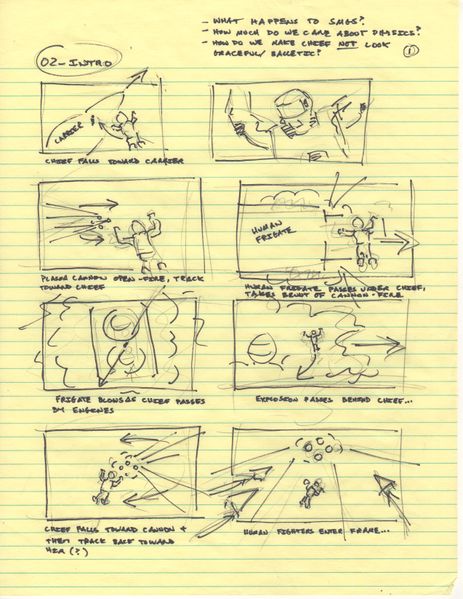 - WHAT HAPPENS TO SMGS?
- HOW MUCH DO WE CARE ABOUT PHYSICS?
- HOW DO WE MAKE CHIEF NOT LOOK
GRACEFUL/BALLETIC?
1
02-INTRO
CARRIER
CHIEF FALLS TOWARD CARRIER
HUMAN
FRIGATE
PLASMA CANNON OPEN-FIRE, TRACK
TOWARD CHIEF
HUMAN FRIGATE PASSES UNDER CHIEF,
TAKES BRUNT OF CANNON-FIRE
FRIGATE BLOWS AS CHIEF PASSES
BY ENGINES
EXPLOSION PASSES BEHIND CHIEF...
CHIEF FALLS TOWARD CANNON &
THEY TRACK BACK TOWARD
HIM (?)
HUMAN FIGHTERS ENTER FRAME...